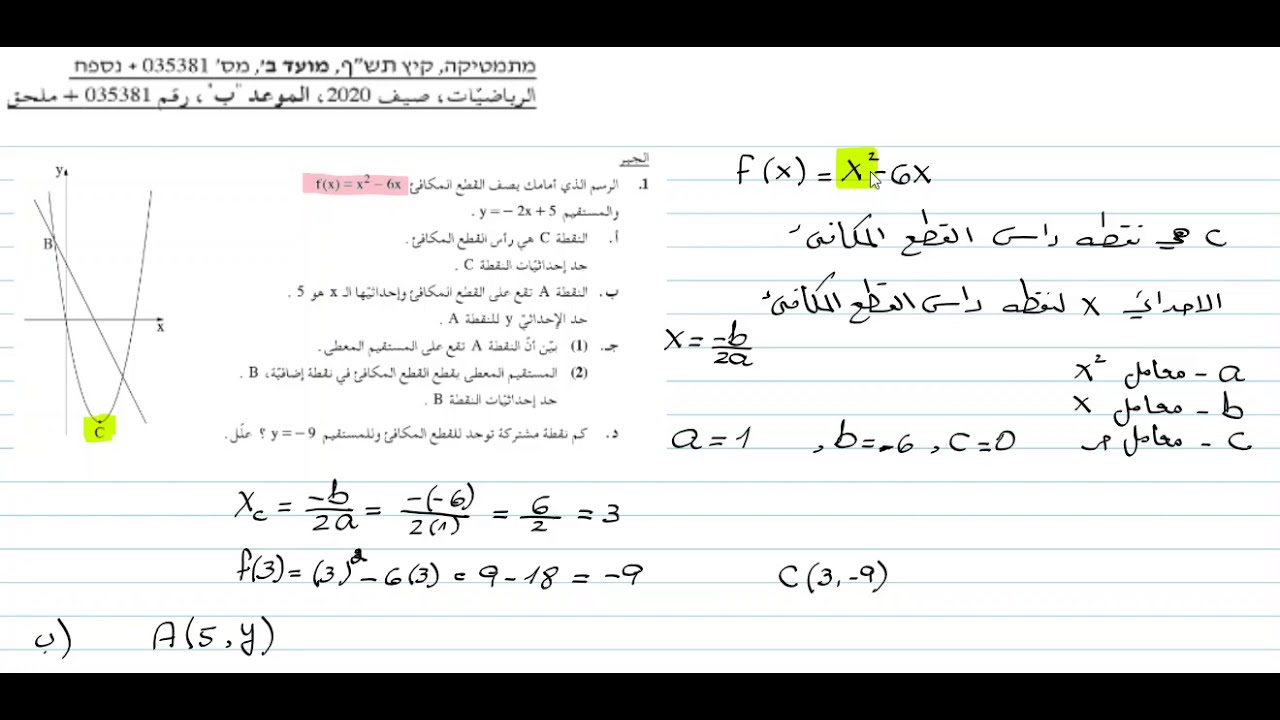 מתמטיקה, קיץ תש"ף, מועד ב', מס' 035381 + נספח
الرياضيّات، صيف 2020، الموعد "ب"، رقم 035381 + ملحق
الجبر
1. الرسم الذي أمامك يصف القطع المكافئ f(x) = x² − 6x
والمستقيم y = − 2x + 5 .
أ. النقطة C هي رأس القطع المكافئ.
جد إحداثيّات النقطة C .
ب. النقطة A تقع على القطع المكافئ وإحداثيّها الـ x هو 5 .
جد الإحداثيّ y للنقطة A .
جـ. (1) بيّن أنّ النقطة A تقع على المستقيم المعطى.
(2) المستقيم المعطى يقطع القطع المكافئ في نقطة إضافيّة، B .
جد إحداثيّات النقطة B .
د. كم نقطة مشتركة توجد للقطع المكافئ وللمستقيم y = − 9 ؟ علّل.
y
B
x
C
f(x) = x² - 6x
C نقطه راس القطع المكافئ
الاحداثي x لنقطه راس القطع المكافئ
x = -b/2a
a - معامل x²
b - معامل x
c - معامل حر
a = 1 , b = -6 , c = 0
Xc = -b/2a = -(-6)/2(1) = 6/2 = 3
f(3) = (3)² - 6(3) = 9 - 18 = -9
C(3, -9)
ب) A(5, y)